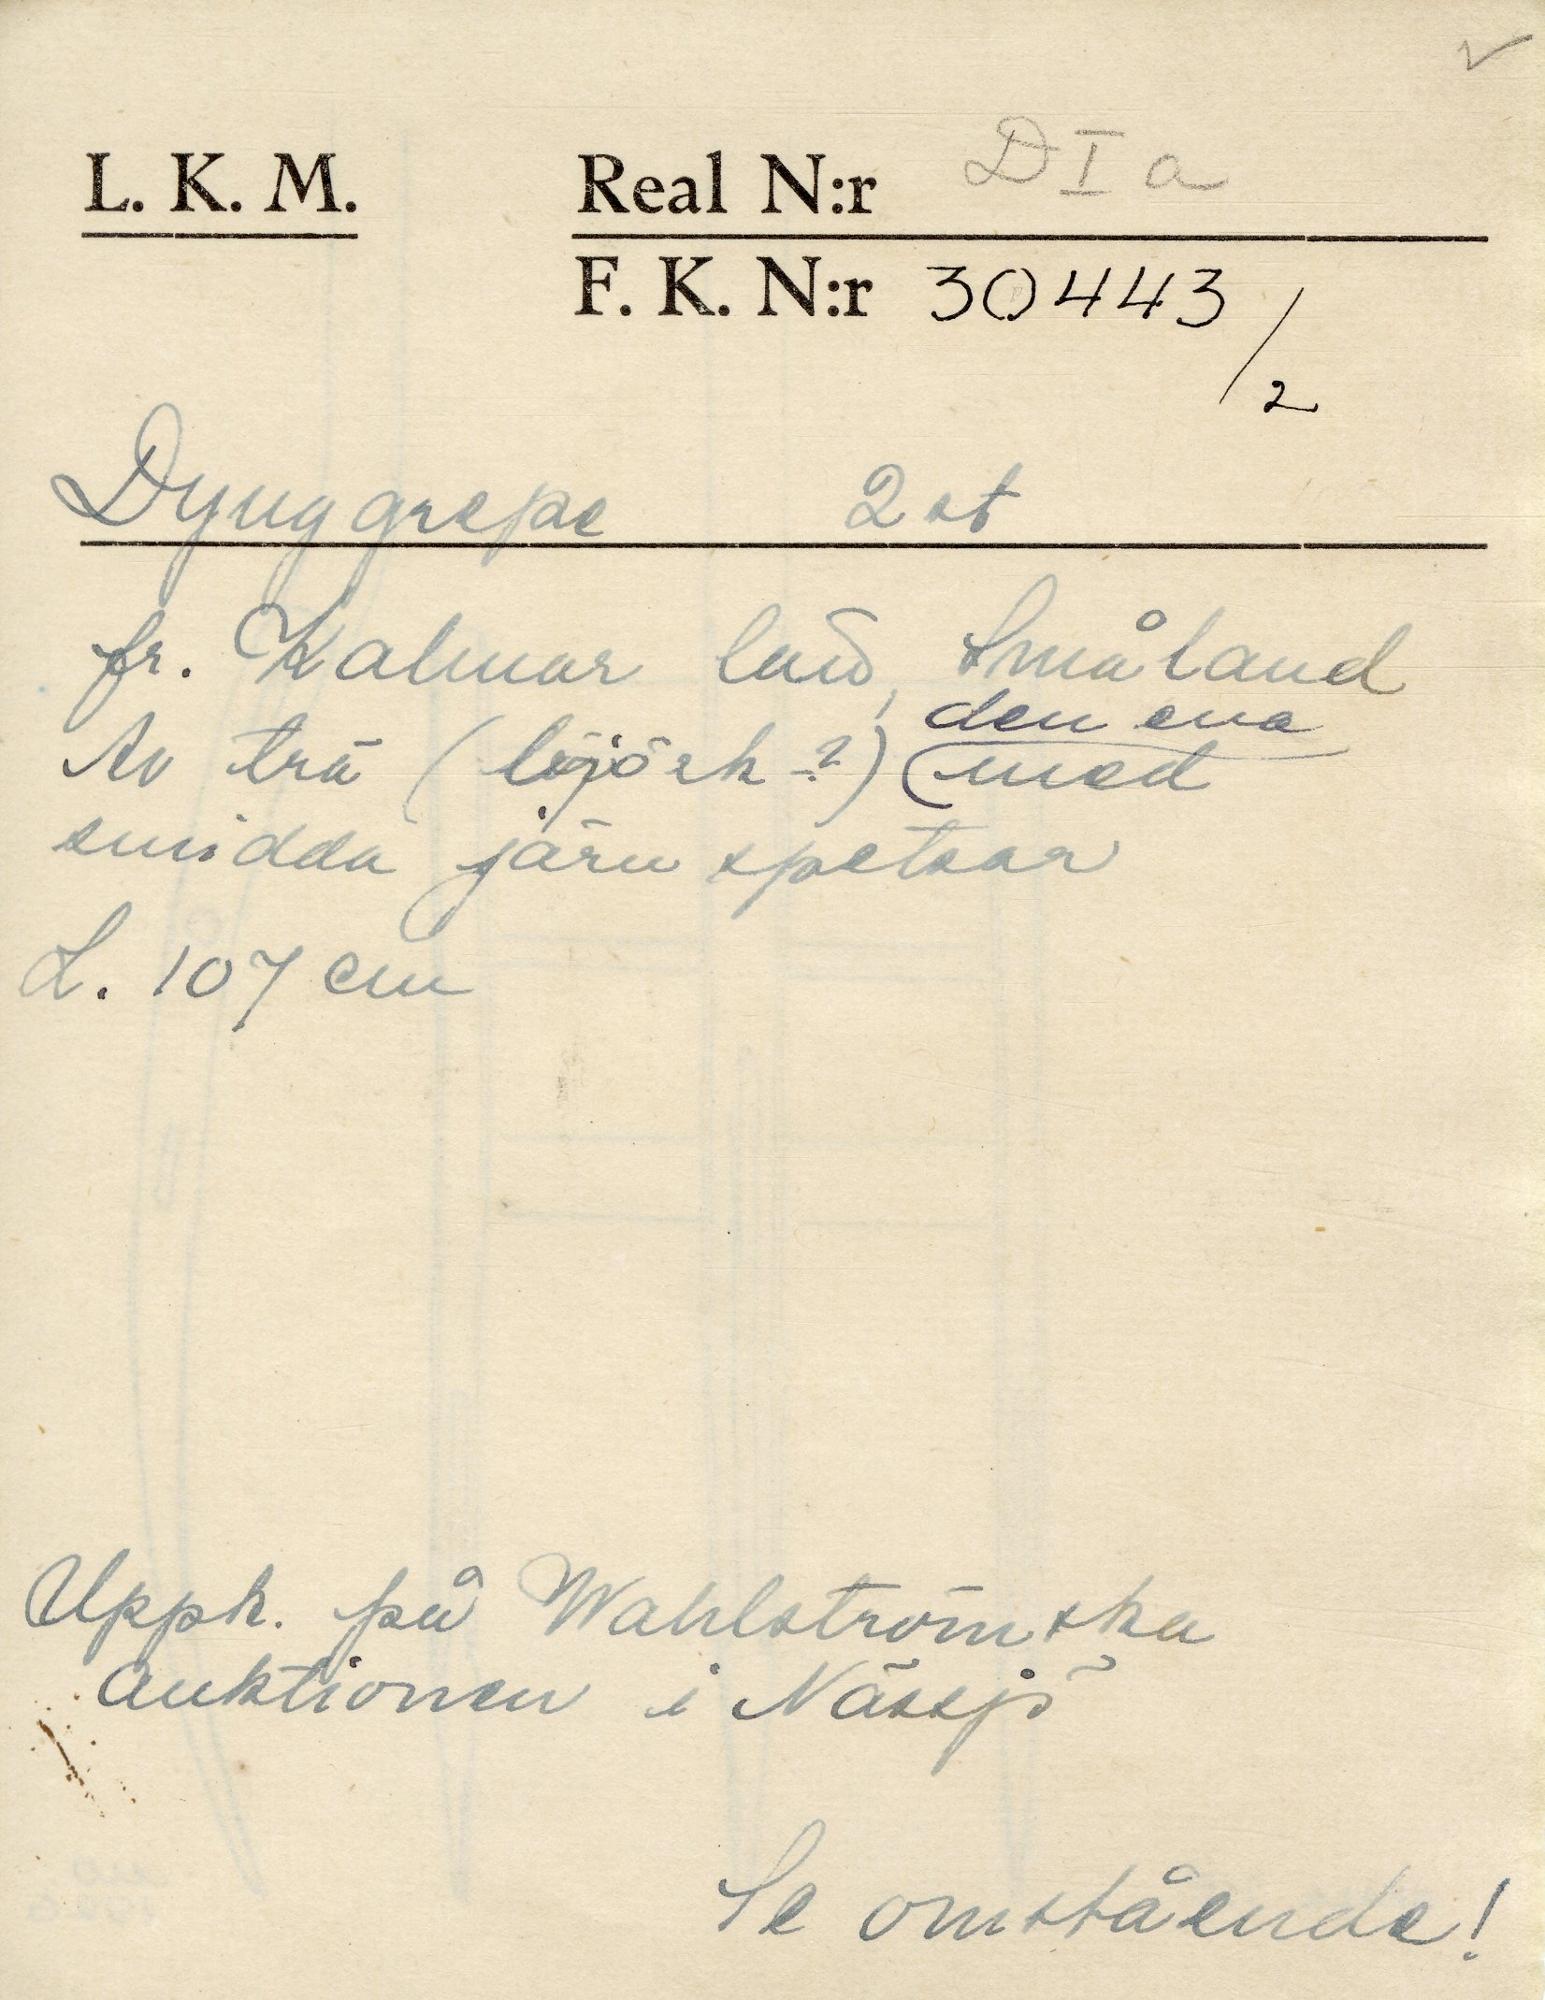 L. K. M.
Real N:r D I a
F. K. N:r 30443/2
Dynggrepe 2 st
fr. Kalmar län, Småland
den ena
Av trä (björk?) med
smidda järnspetsar
L. 107 cm
Uppk. på Wahlströmska
auktionen i Nässjö
Se omstående!